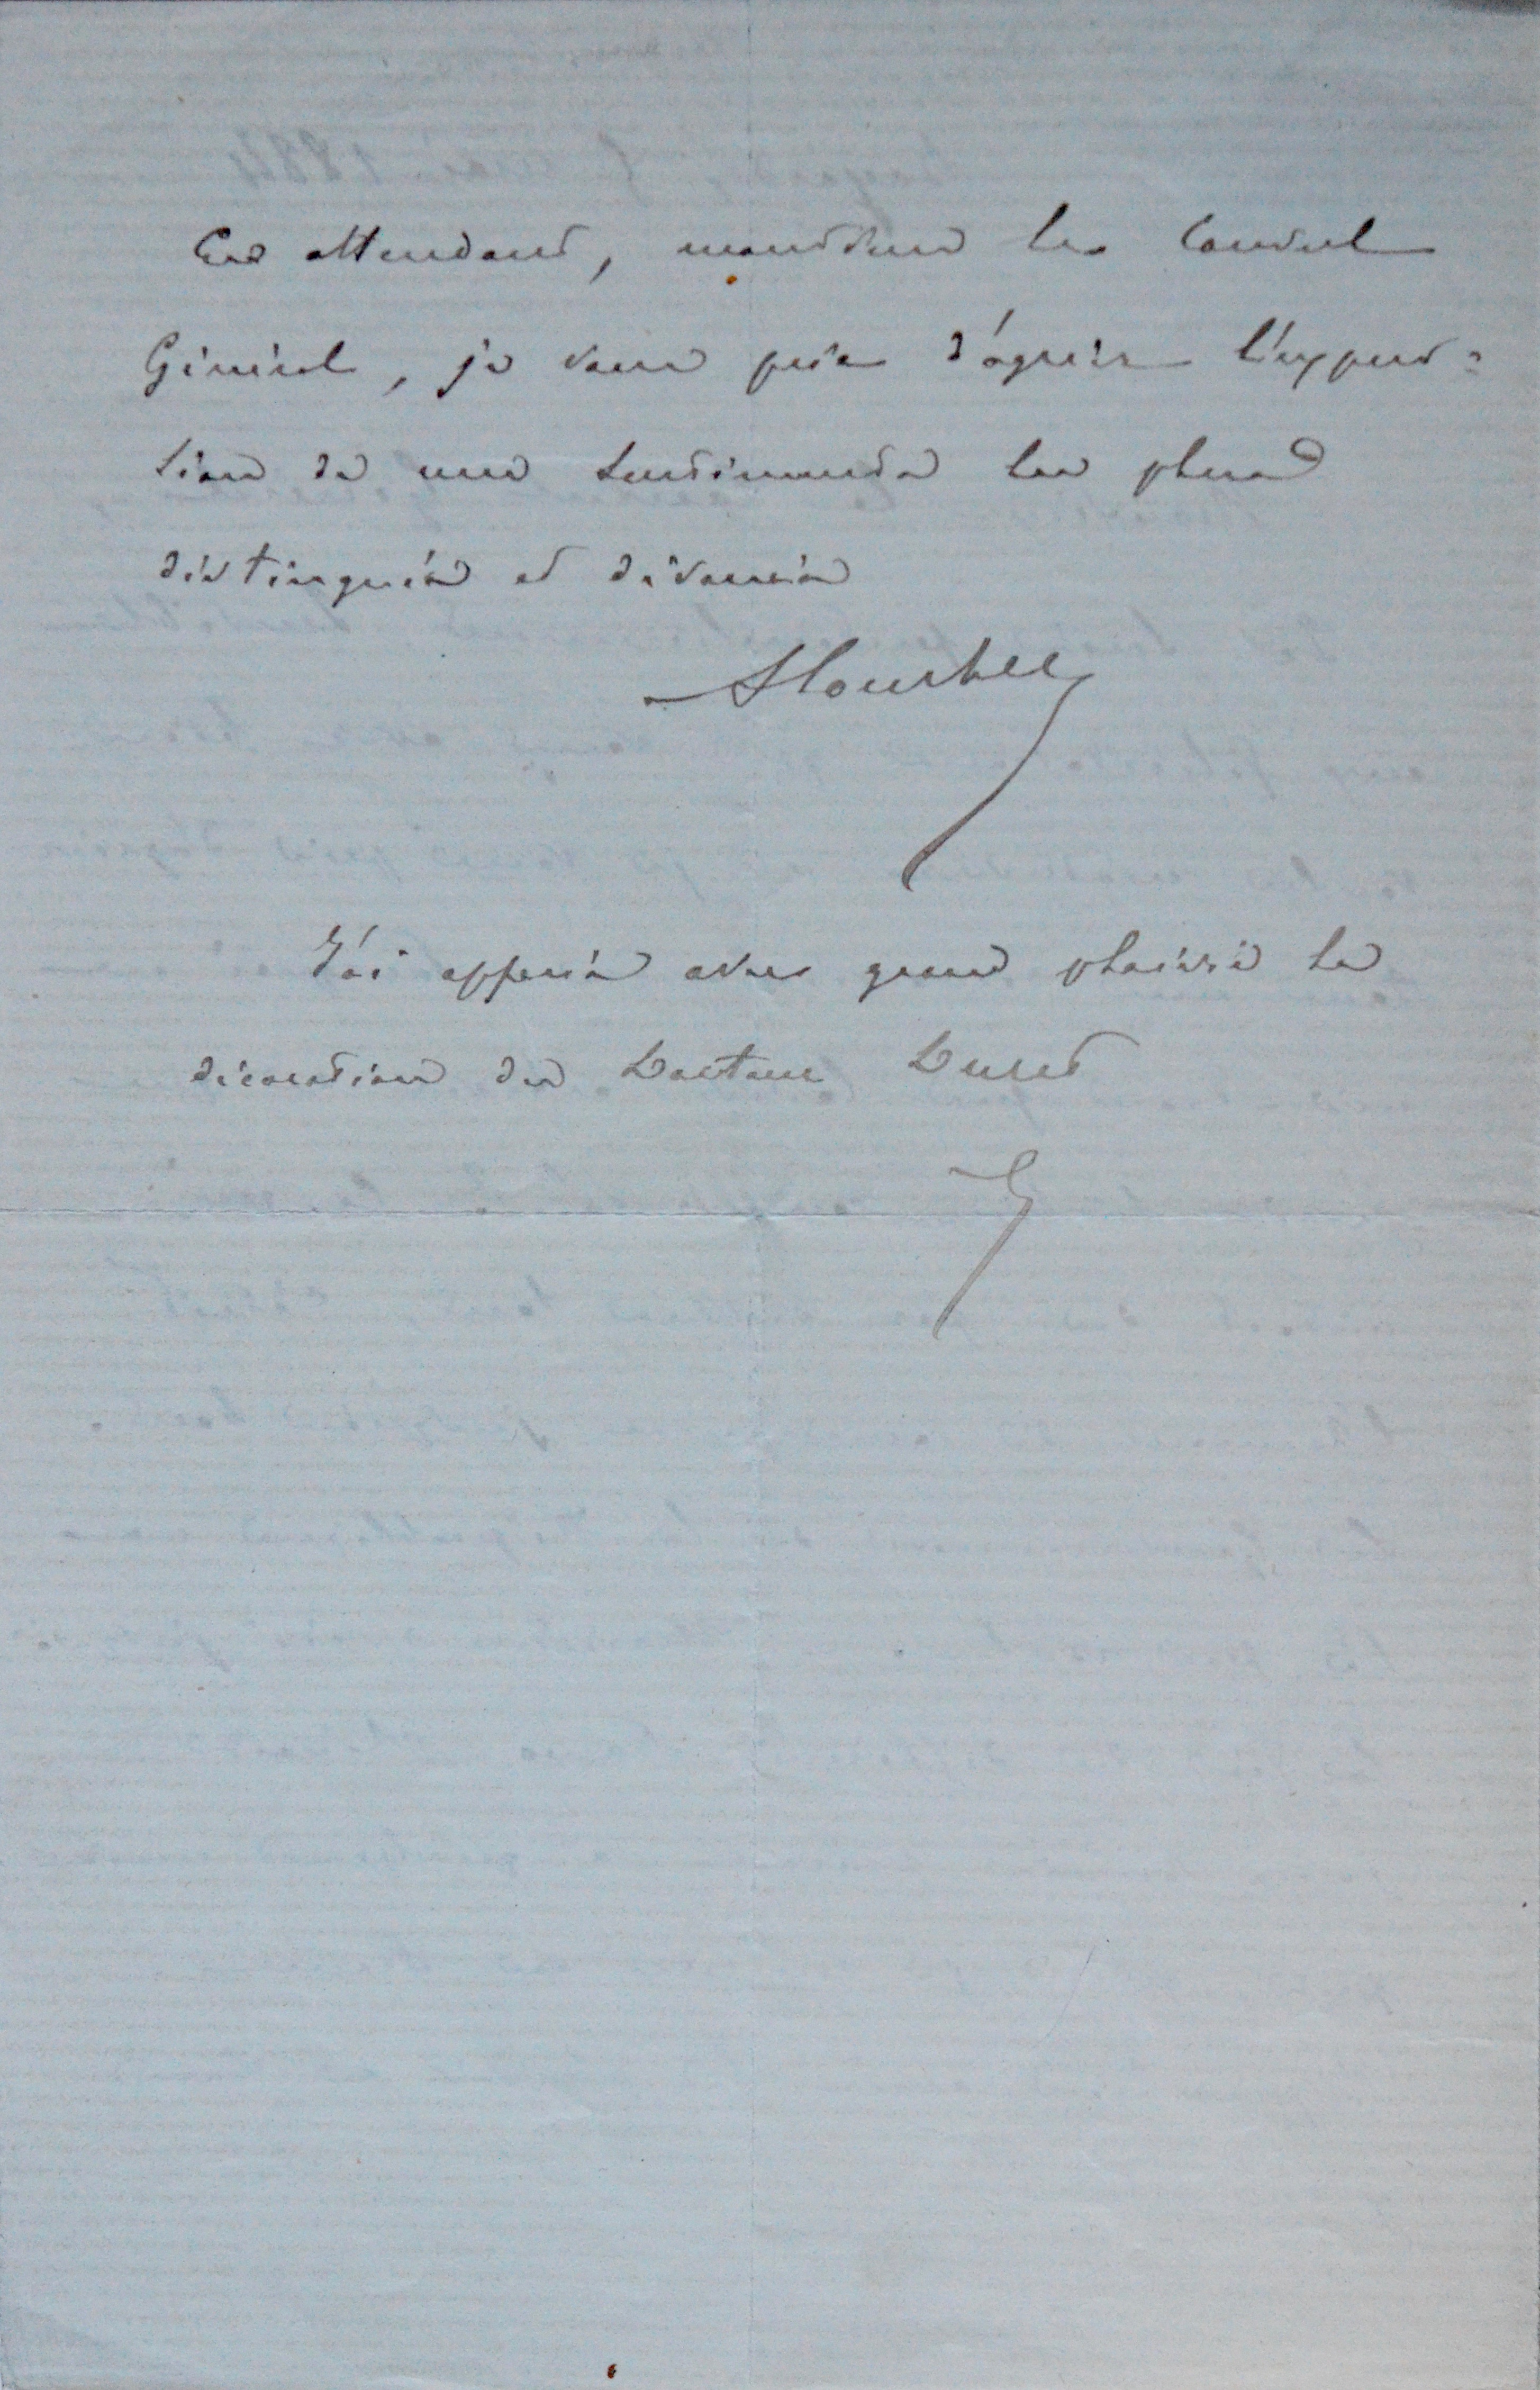 En attendant, monsieur le Consul
Général, je vous prie d'agréer l'expres=
sion de mes sentiments les plus
distingués et dévoués
J'ai appris avec grand plaisir la
décoration du Docteur